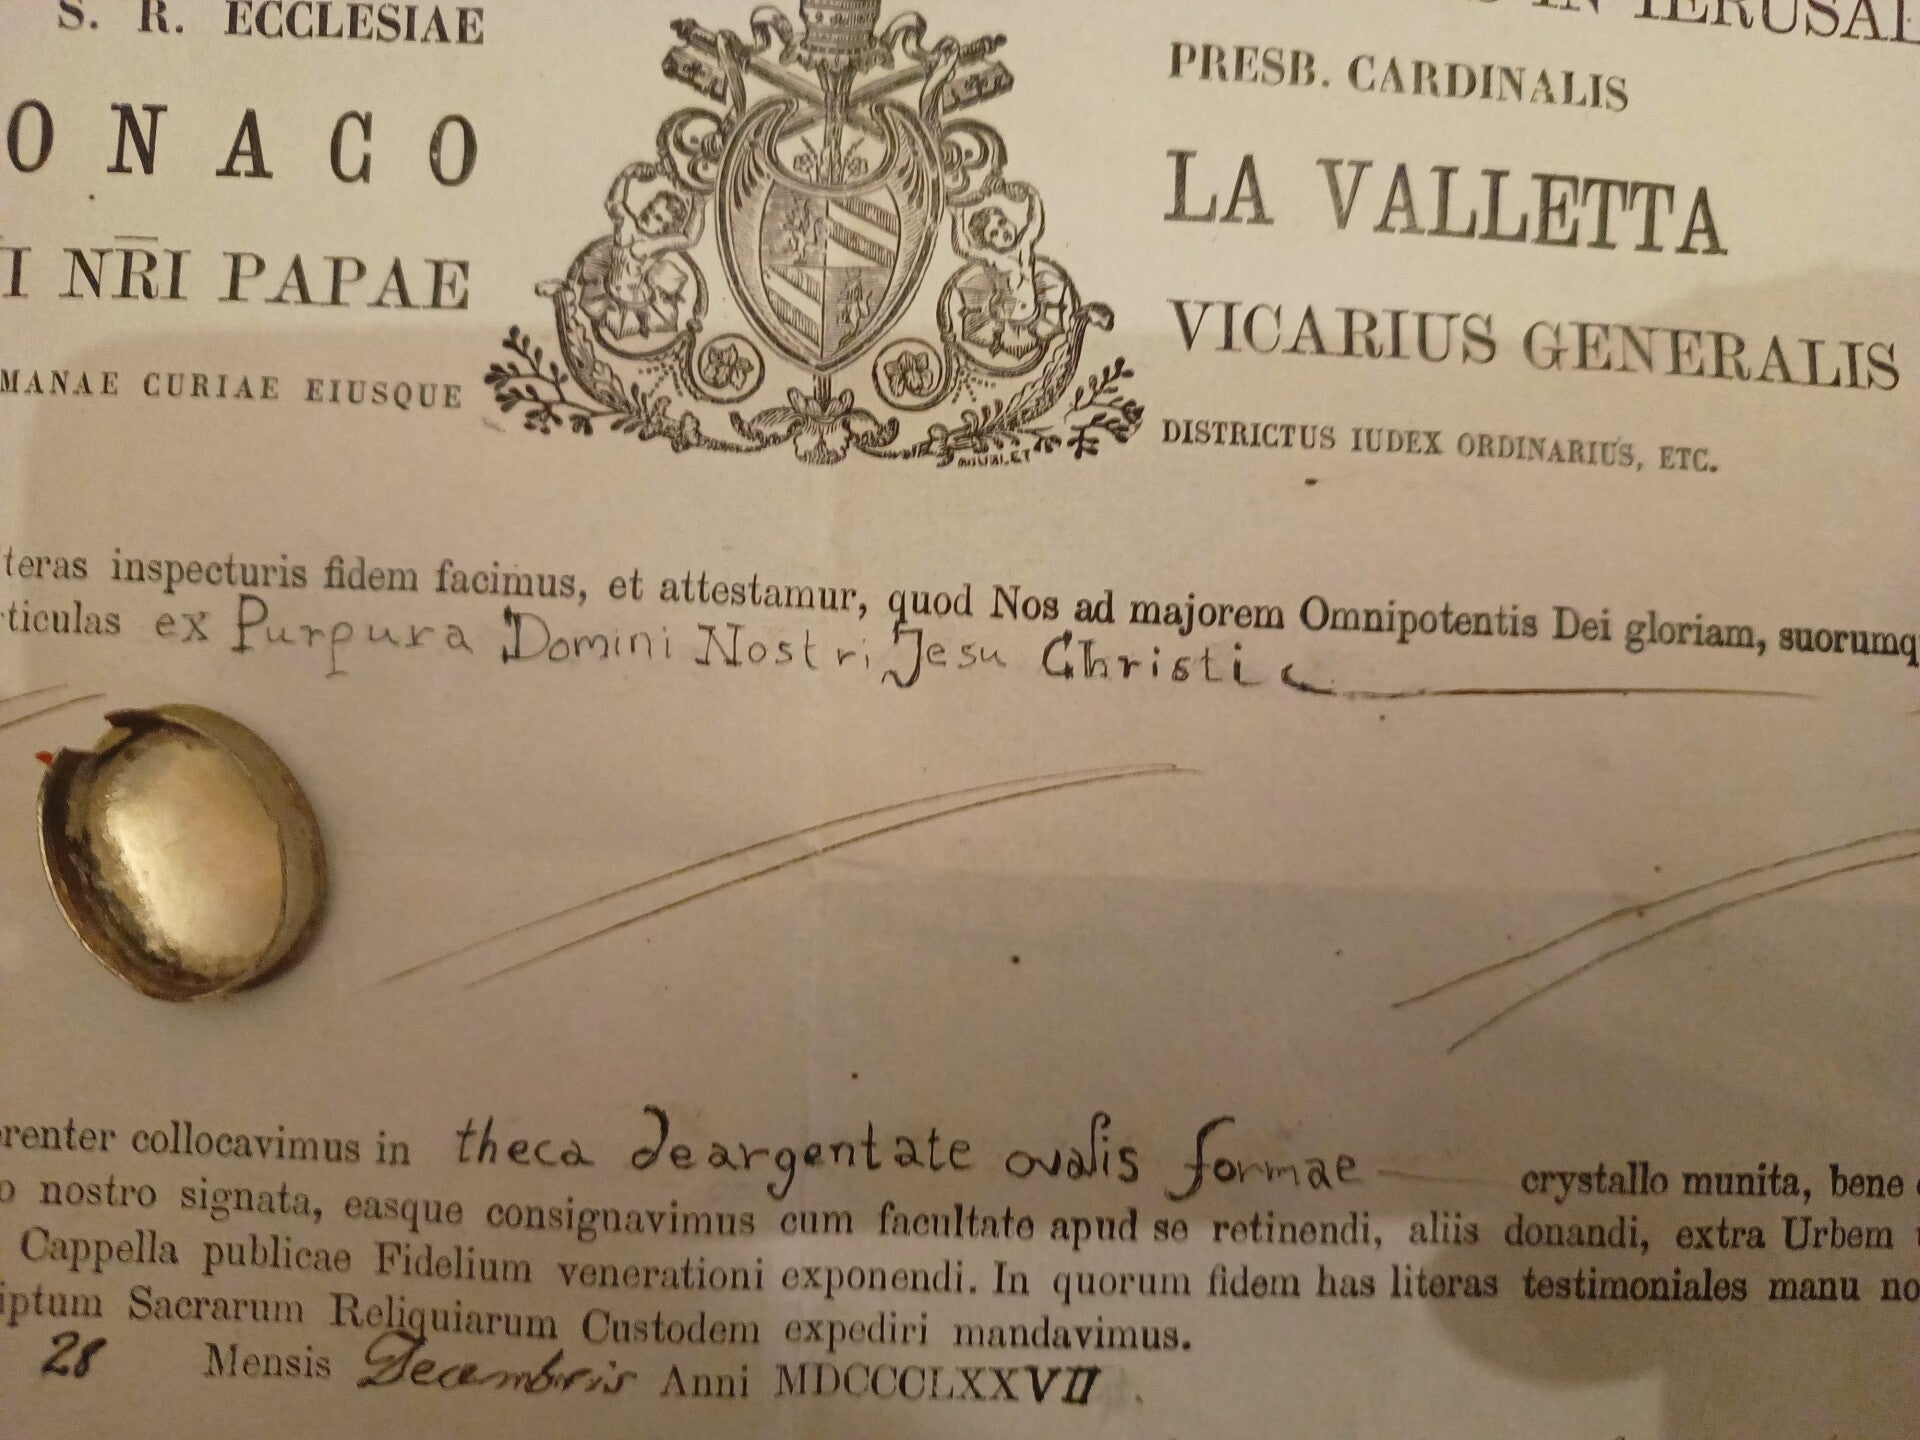 S. R. ECCLESIAE
IN IERUSAL
PRESB. CARDINALIS
ONACO
LA VALLETTA
I NR̅I PAPAE
VICARIUS GENERALIS
MANAE CURIAE EIUSQUE
DISTRICTUS IUDEX ORDINARIUS, ETC.
teras inspecturis fidem facimus, et attestamur, quod Nos ad majorem Omnipotentis Dei gloriam, suorumq
rticulas ex Purpura Domini Nostri Jesu Christi
renter collocavimus in theca deargentate ovalis formae crystallo munita, bene
o nostro signata, easque consignavimus cum facultate apud se retinendi, aliis donandi, extra Urbem
Cappella publicae Fidelium venerationi exponendi. In quorum fidem has literas testimoniales manu no
iptum Sacrarum Reliquiarum Custodem expediri mandavimus.
28 Mensis Decembris Anni MDCCCLXXVII